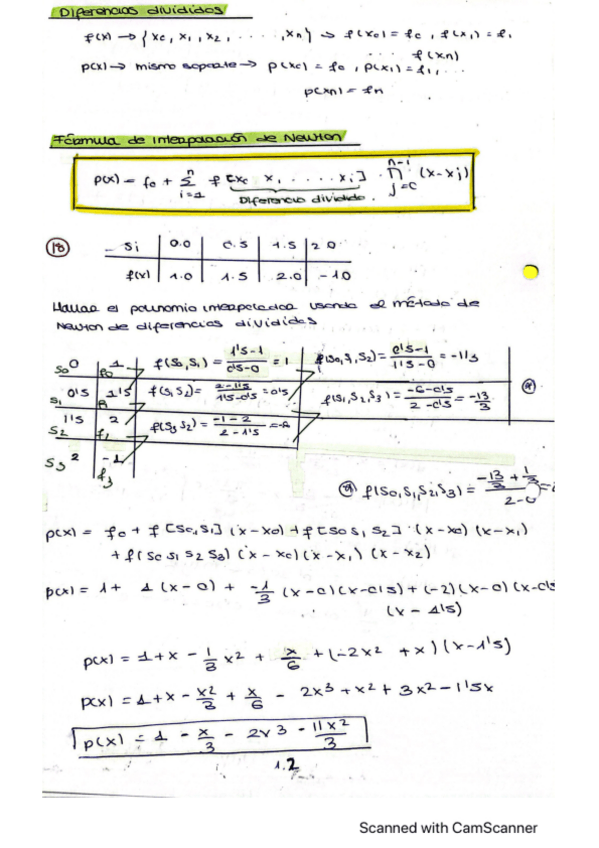 Diferencias divididas
f(x) → {x₀, x₁, x₂, ......, xₙ} ⇒ f(x₀) = f₀, f(x₁) = f₁
... f(xₙ)
p(x) → mismo soporte → p(x₀) = f₀, p(x₁) = f₁, ...
p(xₙ) = fₙ
Fórmula de interpolación de Newton
p(x) = f₀ + Σ f [x₀ x₁ ..... xᵢ] · Π (x-xⱼ)
i=1 n j=0 n-i
Diferencia dividida.
18
Si | 0.0 | 0.5 | 1.5 | 2 0
f(x) | 1.0 | 1.5 | 2.0 | -10
Hallar el polinomio interpolador usando el método de
Newton de diferencias divididas
S₀ 0 | 1 f₀ f(S₀,S₁) = 1'5-1 / 0'5-0 = 1 f(S₀,S₁,S₂) = 0'5-1 / 1'5-0 = -1/3
S₁ 0'5 | 1'5 f(S₁S₂) = 2-1'5 / 1'5-0'5 = 0'5 f(S₁,S₂,S₃) = -6-0'5 / 2-0'5 = -13/3
S₂ 1'5 | 2 f₁ f(S₃S₂) = -1-2 / 2-1'5 = -6
S₃ 2 | -1 f₃
f(S₀,S₁,S₂,S₃) = -13/3 + 1/3 / 2-0 =
p(x) = f₀ + f[S₀,S₁](x-x₀) + f[S₀ S₁ S₂] · (x-x₀)(x-x₁)
+ f(S₀ S₁ S₂ S₃)(x-x₀)(x-x₁)(x-x₂)
p(x) = 1+ 1(x-0) + -1/3 (x-0)(x-0'5) + (-2)(x-0)(x-0'5
(x-1'5)
p(x) = 1+x - 1/3 x² + x/6 + (-2x² + x)(x-1'5)
p(x) = 1+x - x²/3 + x/6 - 2x³ + x² + 3x² - 1'5x
p(x) = 1 - x/3 - 2x3 - 11x²/3
1.2
Scanned with CamScanner